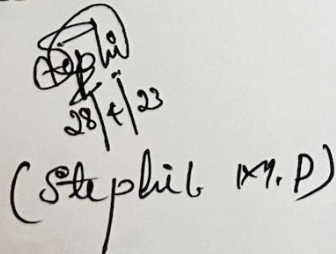 Stephi
28/4/23
(Stephil M.P)